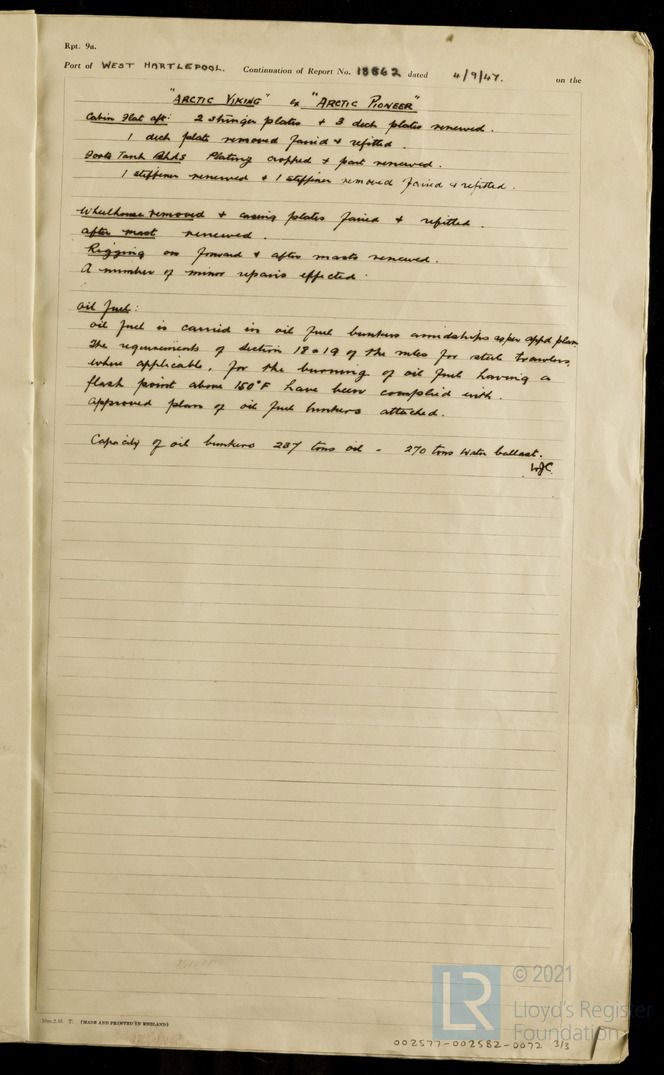 Rpt. 9a.
Port of WEST HARTLEPOOL. Continuation of Report No. 18862 dated 4/9/47. on the
"ARCTIC VIKING" ex "ARCTIC PIONEER"
Cabin Flat aft: 2 stringer plates + 3 deck plates renewed.
1 deck plate removed faired & refitted.
Tank Bhds Plating cropped & part renewed.
1 stiffener renewed & 1 stiffener removed faired & refitted.
Wheelhouse removed & casing plates faired & refitted.
after mast renewed.
Rigging on forward & after masts renewed.
A number of minor repairs effected.
Oil Fuel:
Oil fuel is carried in oil fuel bunkers amidships as per appd plan
The requirements of section 18 & 19 of the rules for steel trawlers,
where applicable, for the burning of oil fuel having a
flash point above 150°F have been complied with.
Approved plan of oil fuel bunkers attached.
Capacity of oil bunkers 237 tons oil - 270 tons water ballast.
WJC.
T. (MADE AND PRINTED IN ENGLAND)
LR © 2021
Lloyd's Register
Foundation
002577-002582-0072 3/3